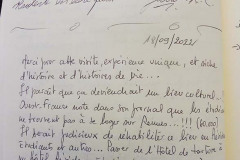 18/09/2022
Merci pour cette visite, expérience unique, et riche
d'histoire et d'histoires de vie...
Il paraît que ça deviendrait un lieu culturel...
Ouest-France note dans son journal que les étudiants
ne trouvent pas à se loger sur Rennes...!!! (60.00)
Il serait judicieux de réhabilité ce lieu en
étudiants et autres... Passer de l'Hôtel de torture à
un hôtel